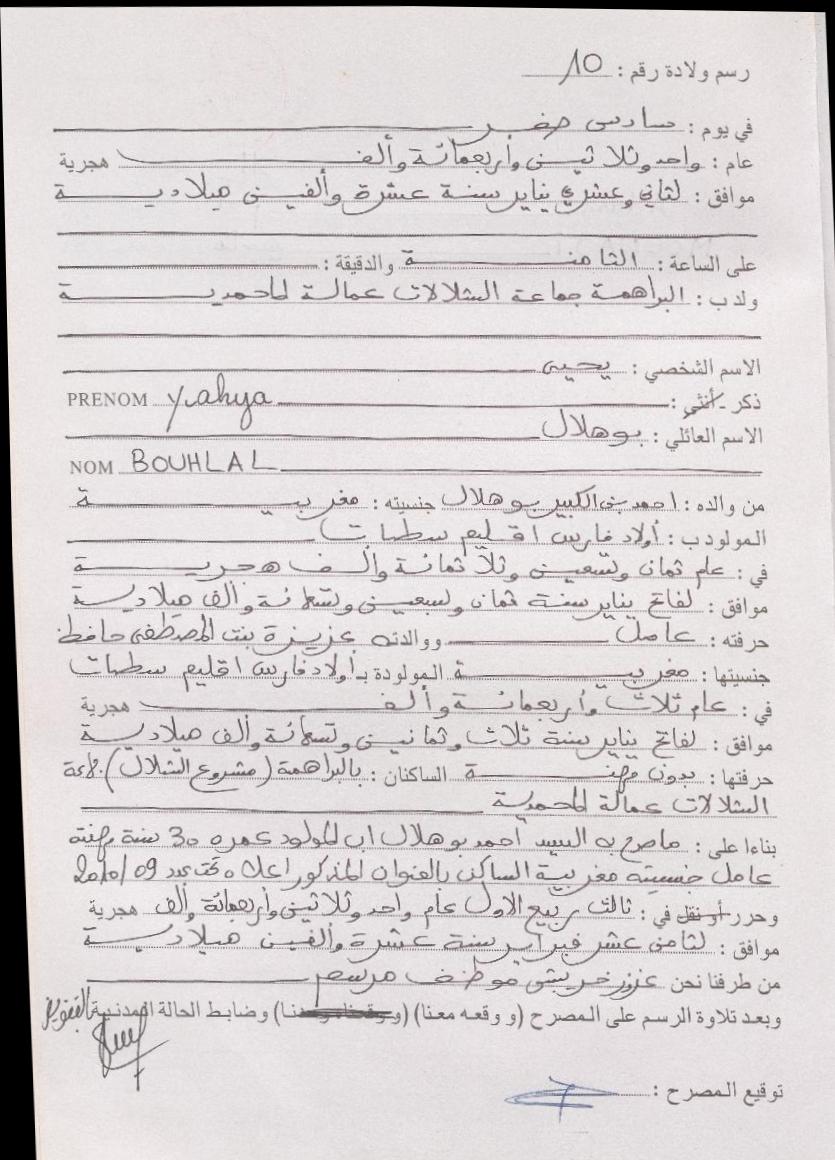 رسم ولادة رقم : 10
في يوم : سادس صفر
عام : واحد وثلاثين وأربعمائة وألف هجرية
موافق : لثاني وعشري يناير سنة عشرة وألفين ميلادية
على الساعة : الثامنة والدقيقة :
ولد ب : البراهمة جماعة الشلالات عمالة المحمدية
الاسم الشخصي : يحيى
ذكر - أنثى : PRENOM yahya
الاسم العائلي : بوهلال
NOM BOUHLAL
من والده : احمد بن الكبير بوهلال جنسيته : مغربية
المولود ب : أولاد فارس اقليم سطات
في : عام ثمان وتسعين وثلاثمائة وألف هجرية
موافق : لفاتح يناير سنة ثمان وسبعين وتسعمائة وألف ميلادية
حرفته : عامل ووالدته عزيزة بنت المصطفى حافظ
جنسيتها : مغربية المولودة بـ أولاد فارس اقليم سطات
في : عام ثلاث وأربعمائة وألف هجرية
موافق : لفاتح يناير سنة ثلاث وثمانين وتسعمائة وألف ميلادية
حرفتها : بدون مهنة الساكنان : بالبراهمة (مشروع الشلال)
الشلالات عمالة المحمدية
بناءا على : ماصرح به السيد احمد بوهلال اب المولود عمره 30 سنة مهنته
عامل جنسيته مغربية الساكن بالعنوان المذكور اعلاه تحت عدد 2010/09
وحرر أو نقل في : ثالث ربيع الاول عام واحد وثلاثين وأربعمائة وألف هجرية
موافق : لثامن عشر فبراير سنة عشرة وألفين ميلادية
من طرفنا نحن عزوز خربش موظف مرسم
وبعد تلاوة الرسم على المصرح (و وقعه معنا) (و وقعناه وحدنا) وضابط الحالة المدنية بالتفويض
توقيع المصرح :